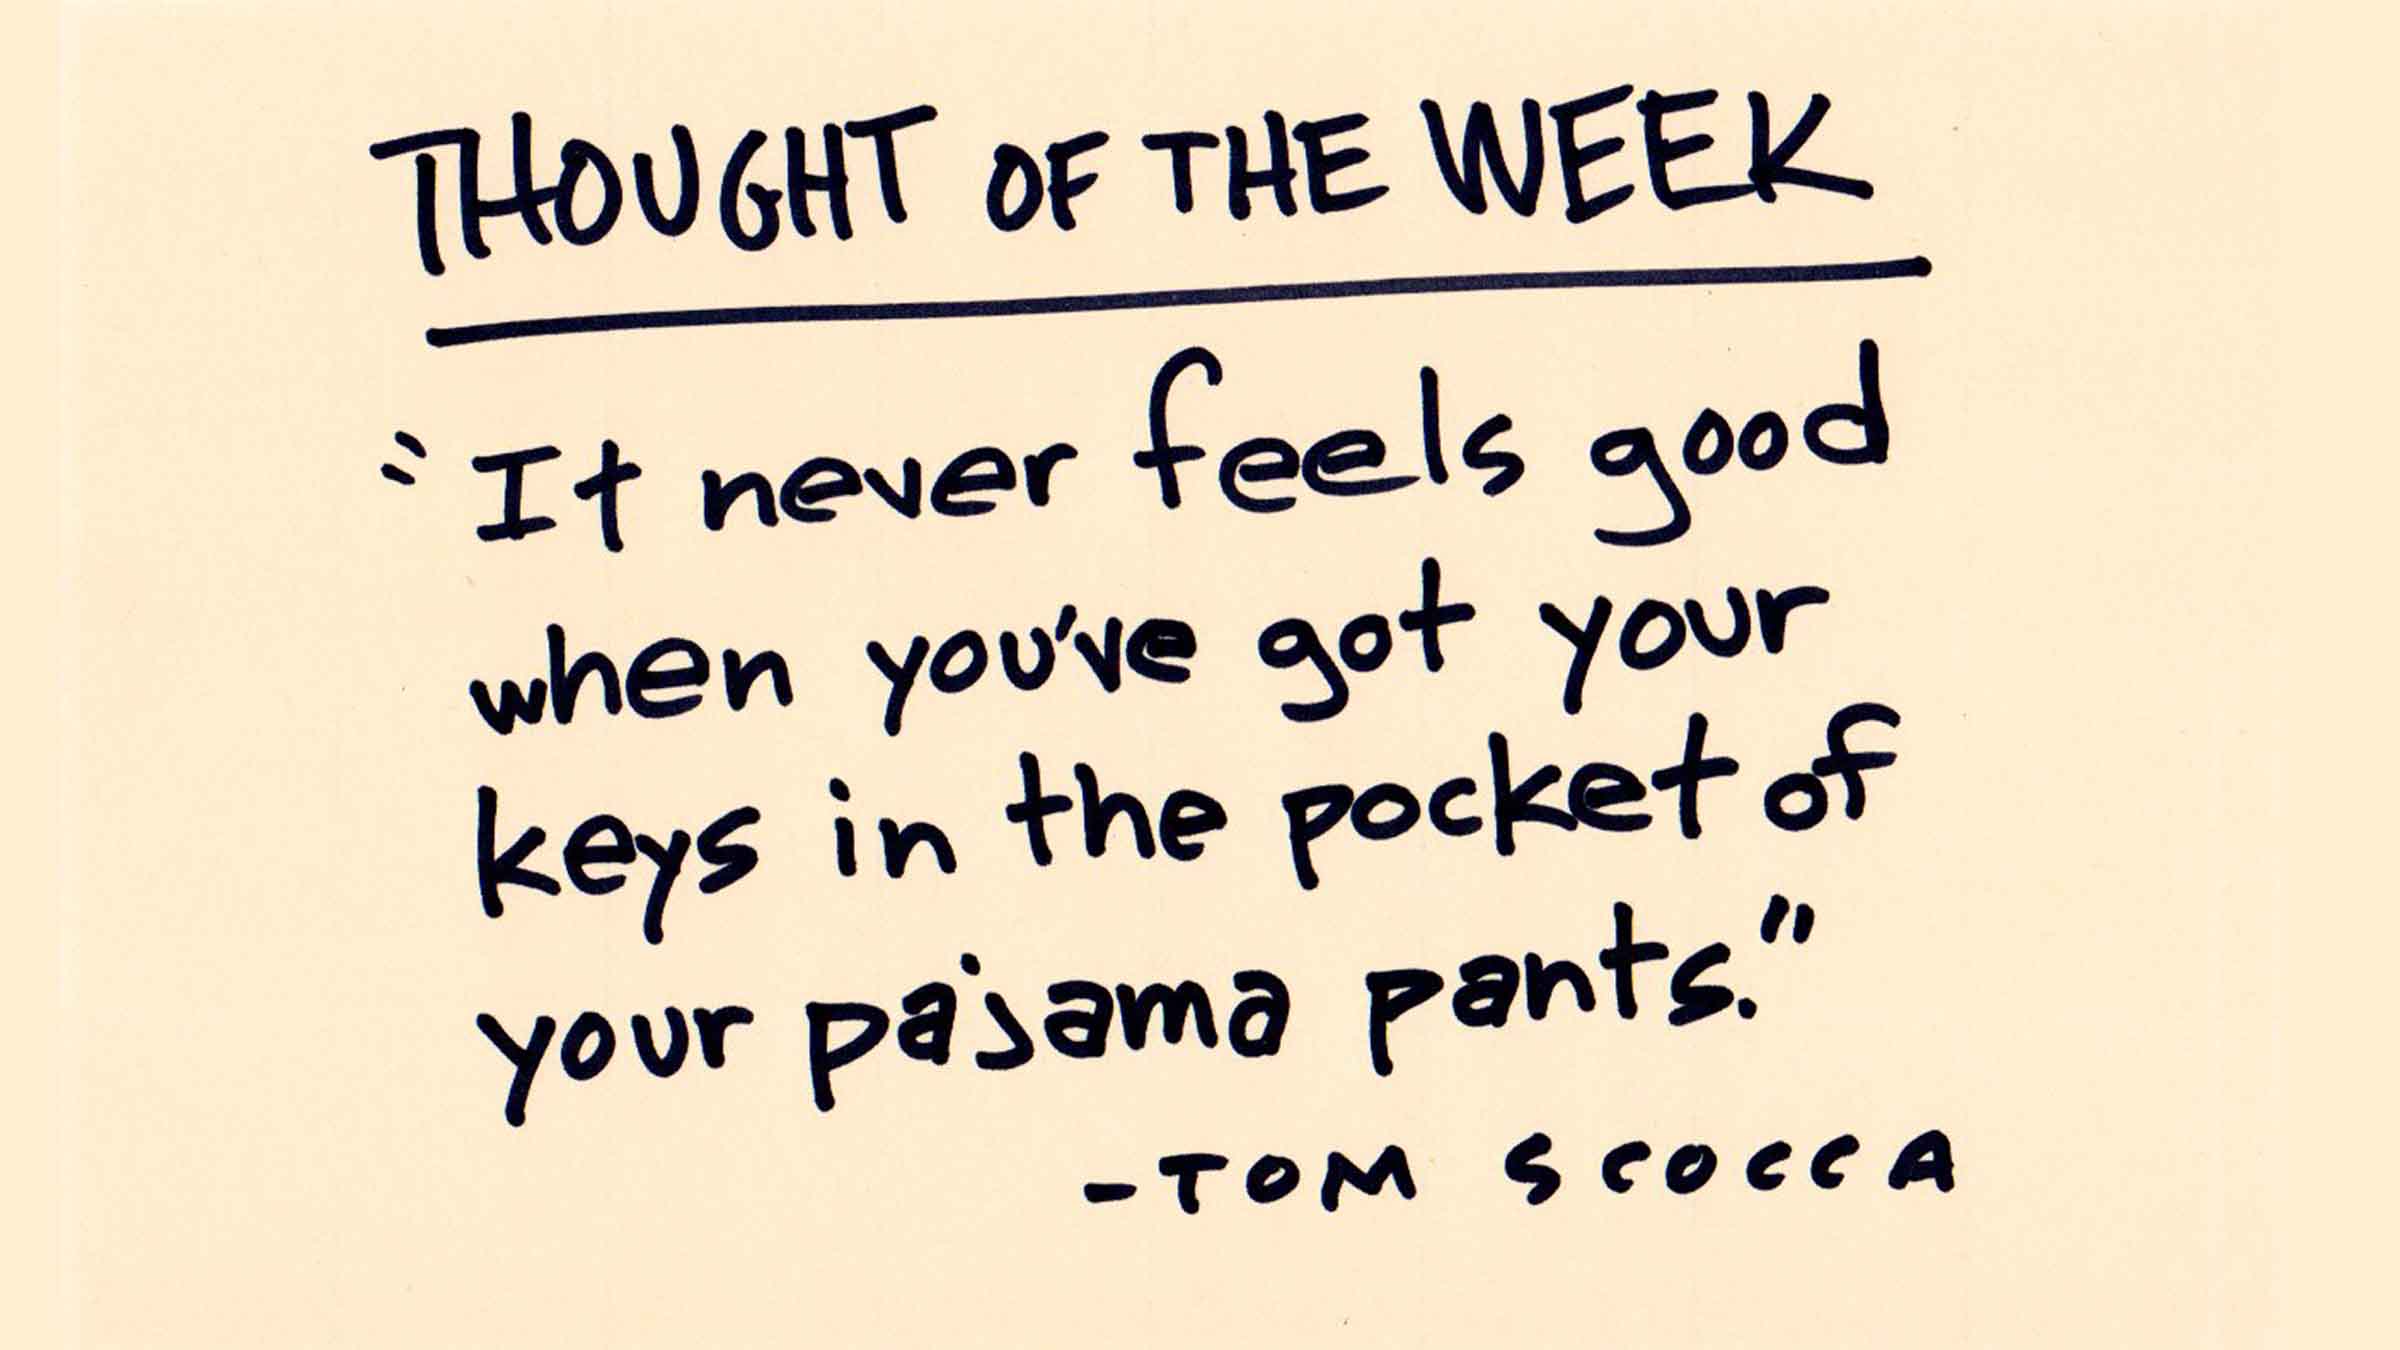 THOUGHT OF THE WEEK
"It never feels good
when you've got your
keys in the pocket of
your pajama pants."
-TOM SCOCCA